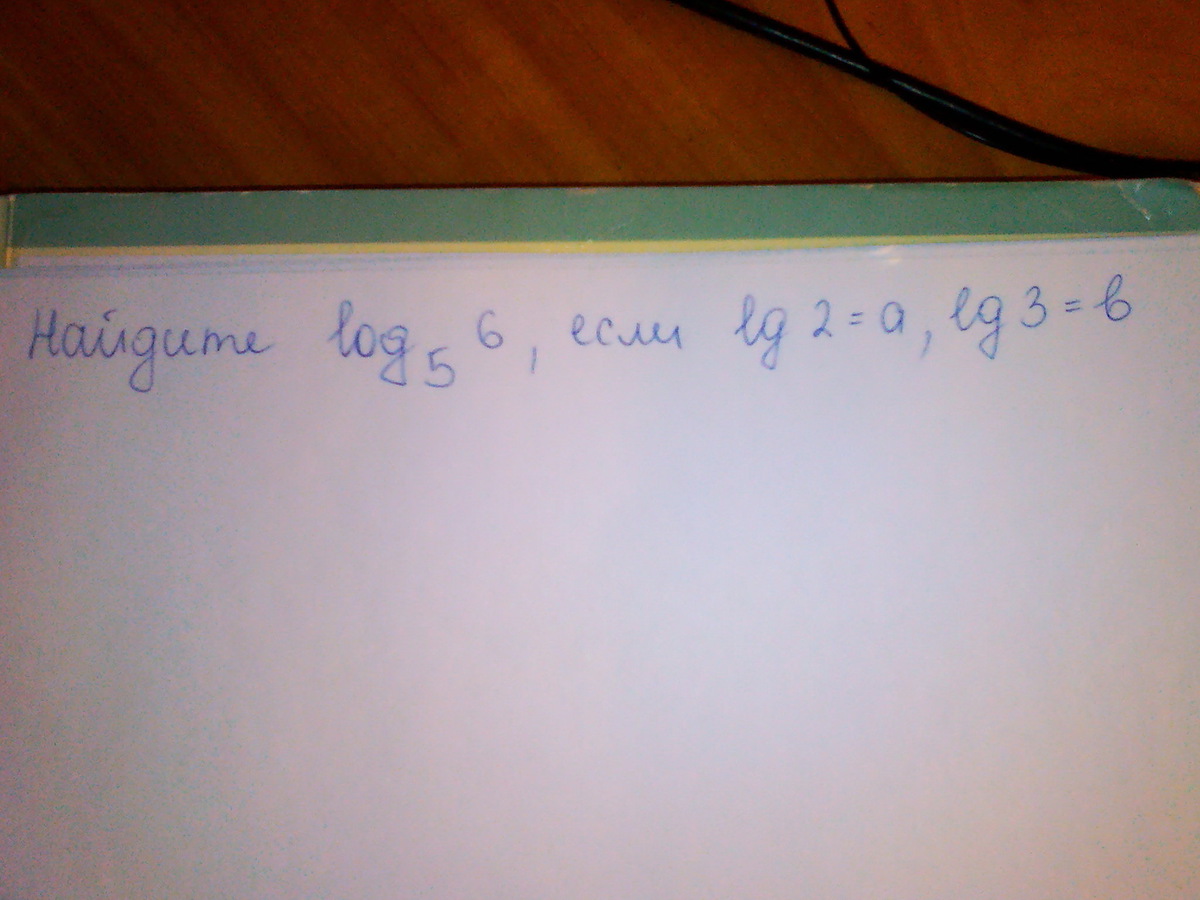 Найдите log₅ 6, если lg 2 = a, lg 3 = b